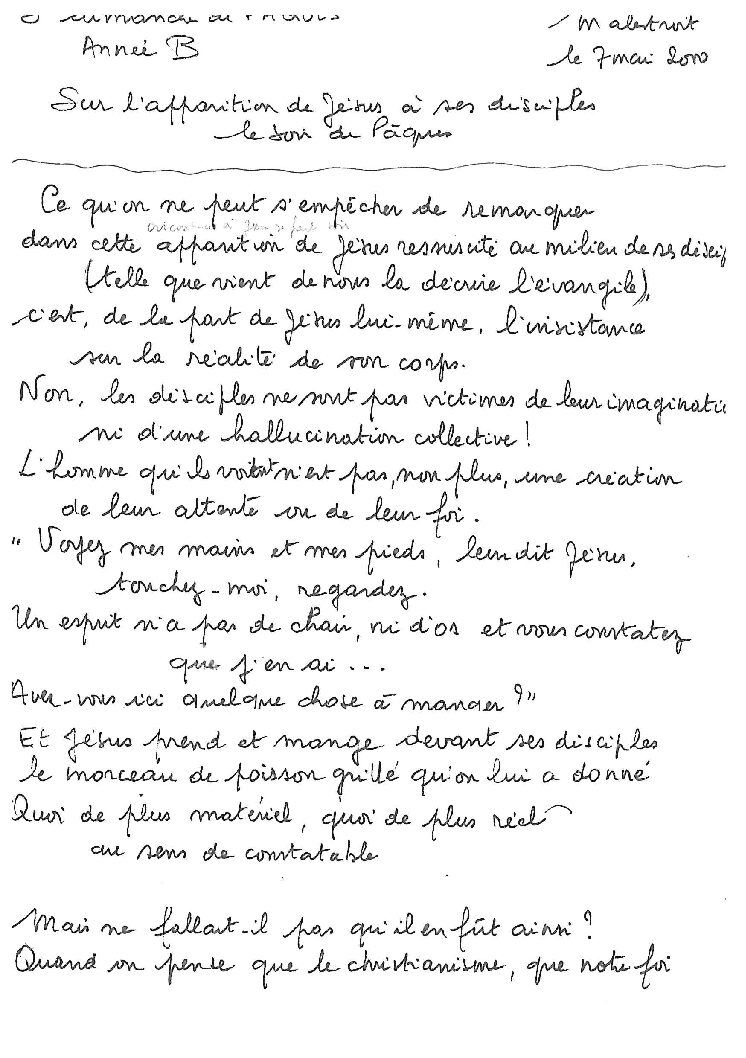 dimanche de Pâques
Année B
Malestroit
le 7 mai 2000
Sur l'apparition de Jésus à ses disciples
le soir de Pâques
Ce qu'on ne peut s'empêcher de remarquer
dans cette apparition de Jésus ressuscité au milieu de ses discip
(telle que vient de nous la décrire l'évangile),
c'est, de la part de Jésus lui-même, l'insistance
sur la réalité de son corps.
Non, les disciples ne sont pas victimes de leur imaginatio
ni d'une hallucination collective !
L'homme qu'ils voient n'est pas, non plus, une création
de leur attente ou de leur foi.
"Voyez mes mains et mes pieds, leur dit Jésus,
touchez-moi, regardez.
Un esprit n'a pas de chair, ni d'os et vous constatez
que j'en ai ...
Avez-vous ici quelque chose à manger ?"
Et Jésus prend et mange devant ses disciples
le morceau de poisson grillé qu'on lui a donné
Quoi de plus matériel, quoi de plus réel
au sens de constatable
Mais ne fallait-il pas qu'il en fût ainsi ?
Quand on pense que le christianisme, que notre foi